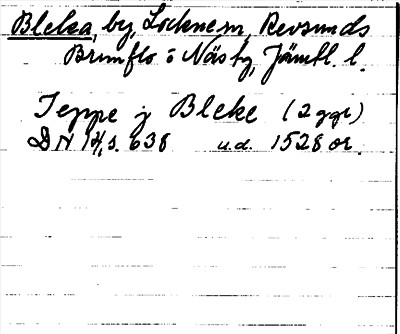 Bleka, by, Locknem, Revsunds
Brunflo o Näs tg, Jämtl. l.
Jeppe j Bleke (2 ggr)
DN 14, s. 638 u.d. 1528 or.